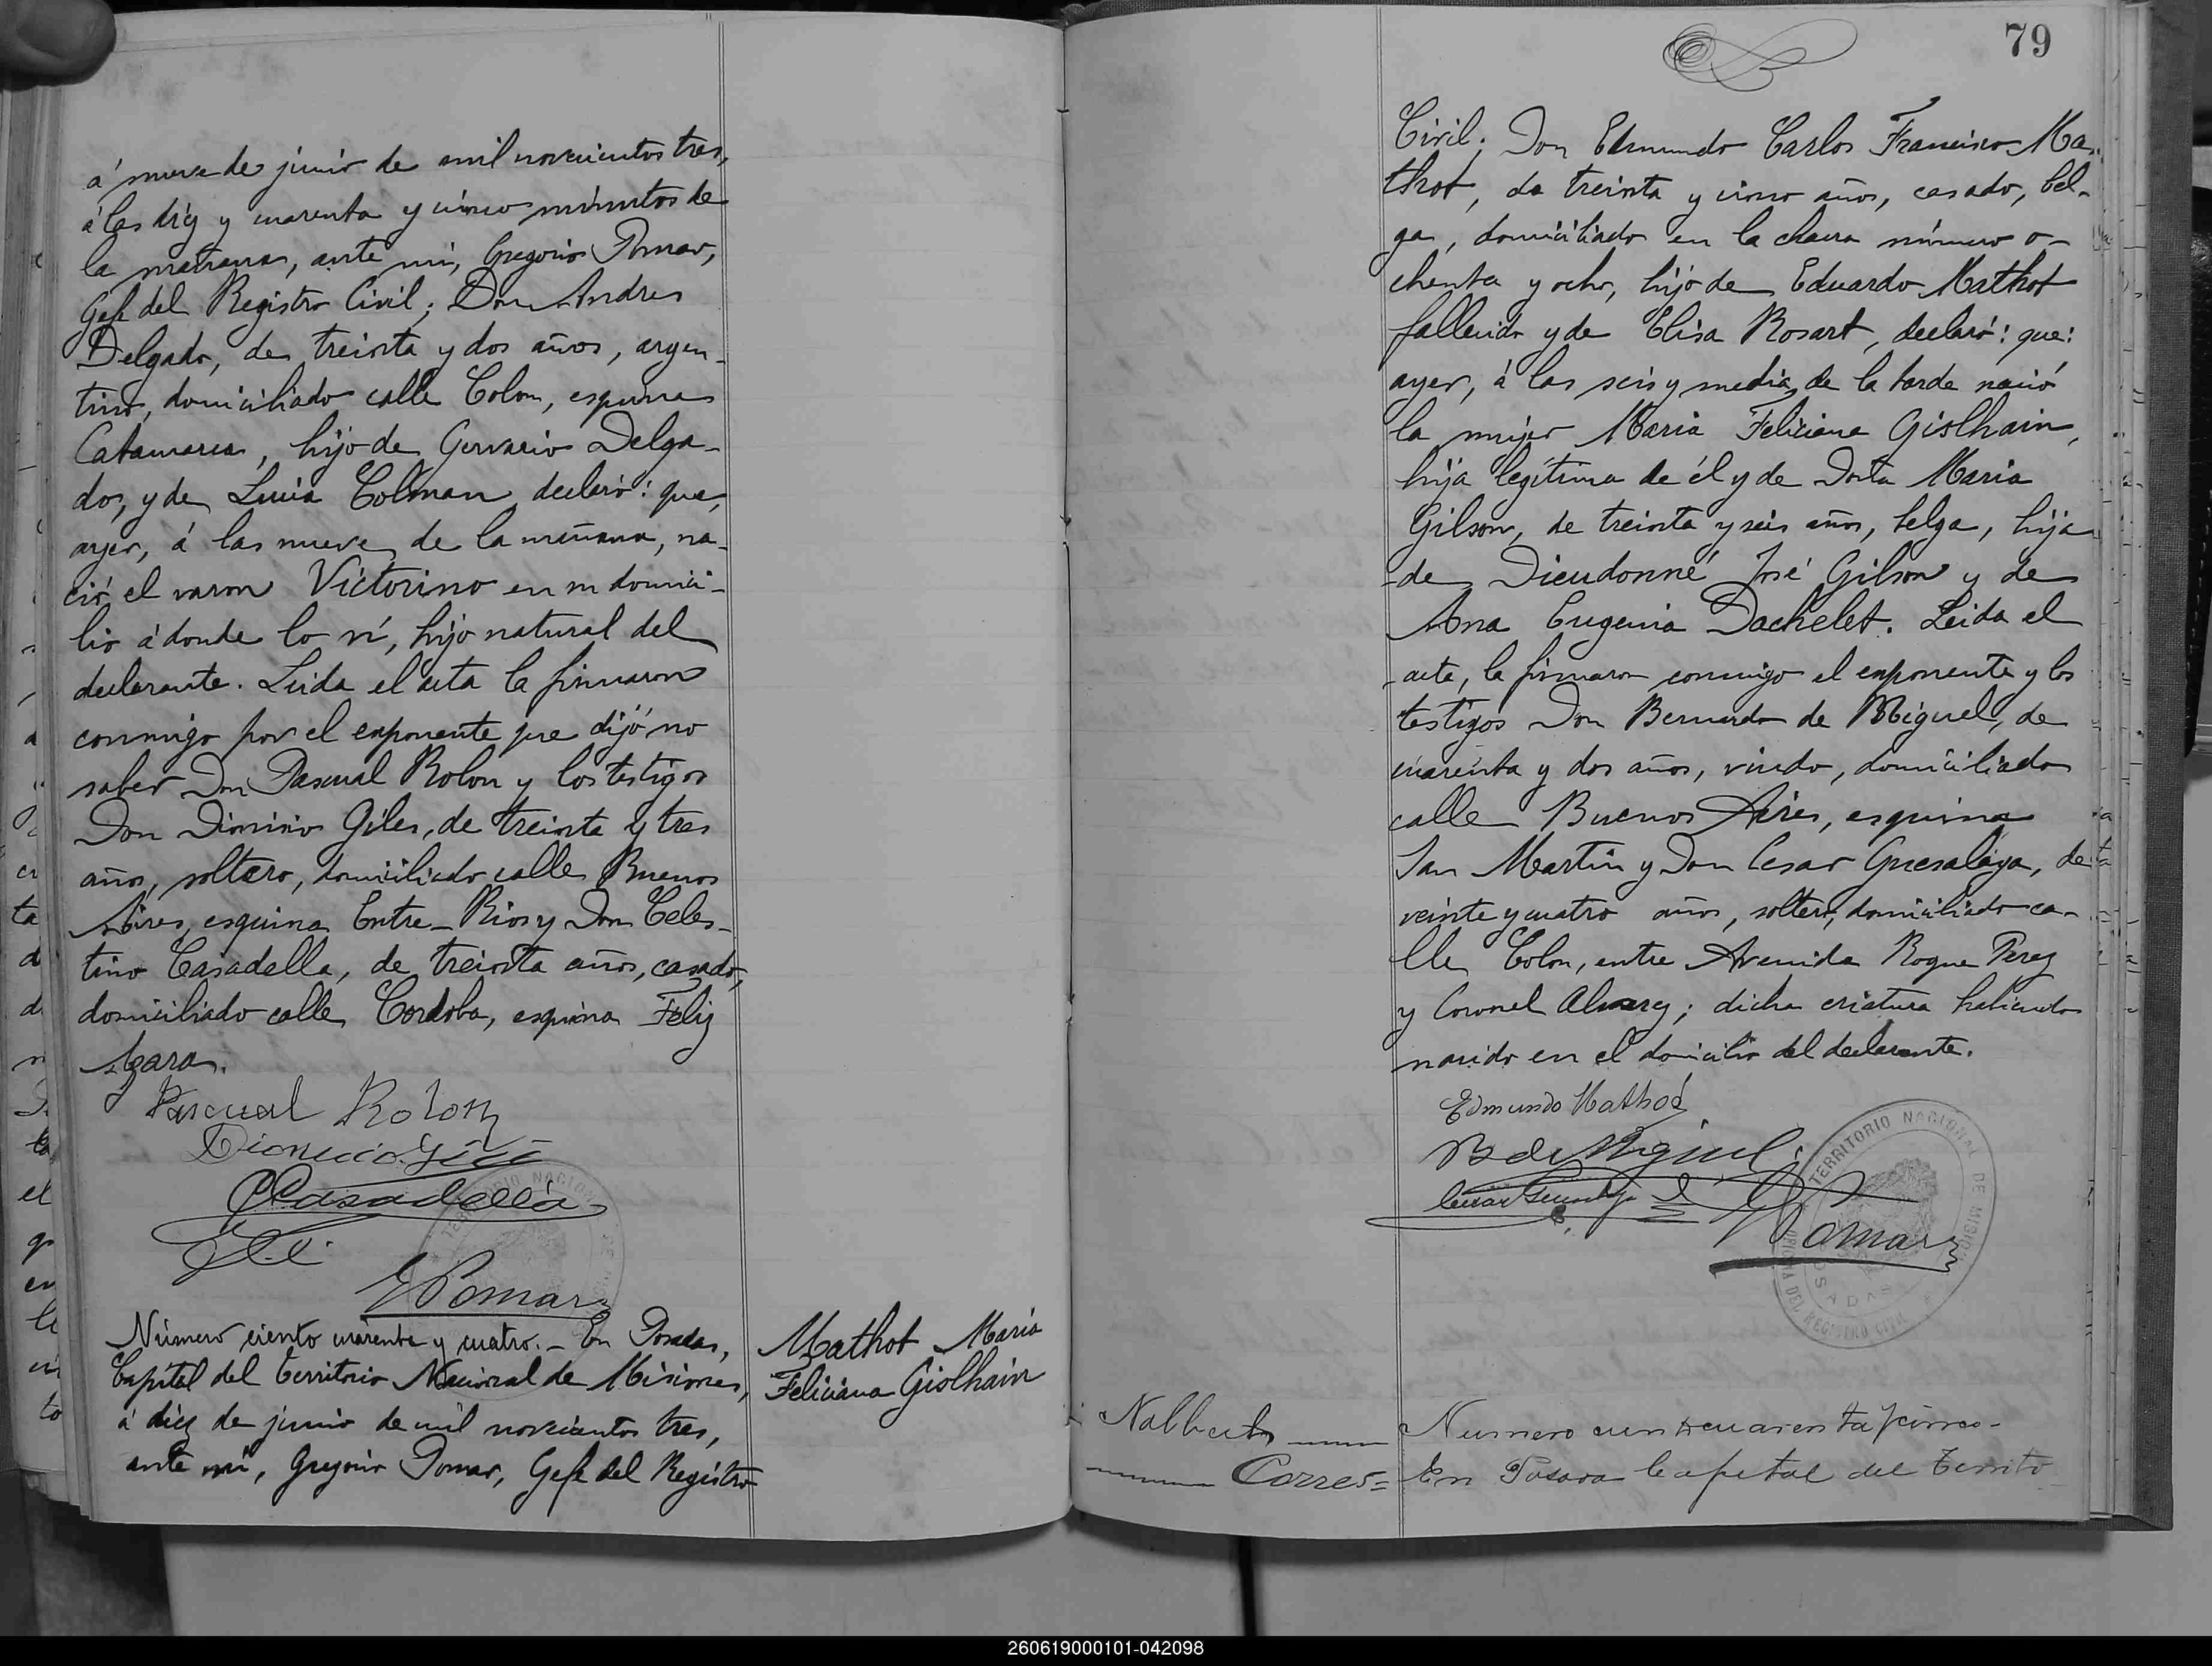 á nueve de junio de mil novecientos tres,
á las diez y cuarenta y cinco minutos de
la mañana, ante mi, Gregorio Pomar,
Gefe del Registro Civil; Don Andres
Delgado, de treinta y dos años, argen-
tino, domiciliado calle Colon, esquina
Catamarca, hijo de Gervacio Delga-
do, y de Lucia Colman declaró: que,
ayer, á las nueve de la mañana, na-
ció el varon Victorino en su domici-
lio á donde lo ví, hijo natural del
declarante. Leida el acta la firmaron
conmigo por el exponente que dijó no
saber Don Pascual Rolon y los testigos
Don Dionicio Giles, de treinta y tres
años, soltero, domiciliado calle Buenos
Aires, esquina Entre-Rios y Don Celes-
tino Casadella, de treinta años, casado,
domiciliado calle Cordoba, esquina Feliz
Azara.
Pascual Rolon
Dionicio
CCasadella
GPomar
Número ciento cuarenta y cuatro.- En Posadas,
Capital del territorio Nacional de Misiones,
á diez de junio de mil novecientos tres,
ante mi, Gregorio Pomar, Gefe del Registro
Mathot Maria
Feliciana Gislhain
79
Civil; Don Edmundo Carlos Francisco Ma-
thot, de treinta y cinco años, casado, bel-
ga, domiciliado en la chacra número o-
chenta y ocho, hijo de Eduardo Mathot
fallecido y de Elisa Rosart, declaró: que:
ayer, á las seis y media de la tarde nació
la mujer Maria Feliciana Gislhain,
hija legítima de él y de Doña Maria
Gilson, de treinta y seis años, belga, hija
de Dieudonné José Gilson y de
Ana Eugenia Dachelet. Leida el
acta, la firmaron conmigo el exponente y los
testigos Don Bernardo de Miguel, de
cuarenta y dos años, viudo, domiciliado
calle Buenos Aires, esquina
San Martin y Don Cesar Guesalaga, de
veinte y cuatro años, soltero, domiciliado ca-
lle Colon, entre Avenida Roque Perez
y Coronel Alvarez; dicha criatura habiendo
nacido en el domicilio del declarante.
Edmundo Mathot
B de Miguel
Cesar
GPomar
TERRITORIO NACIONAL DE MISIONES
POSADAS
OFICINA DEL REGISTRO CIVIL
Corres=
Numero cuarenta y cinco-
En Posada Capital del Territo
260619000101-042098